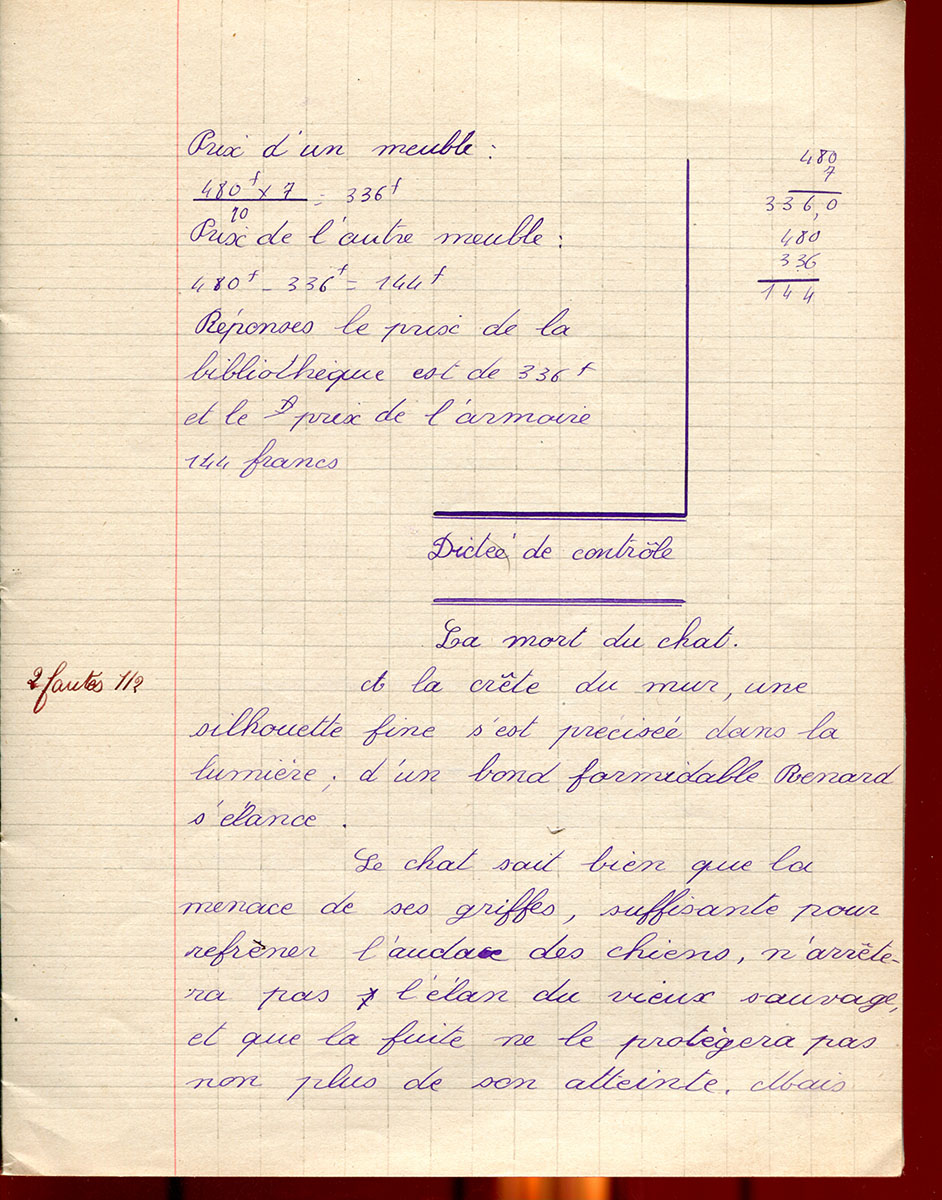 Prix d'un meuble :
480f x 7 / 10 = 336f
Prix de l'autre meuble :
480f - 336f = 144f
Réponses le prix de la
bibliothèque est de 336f
et le prix de l'armoire
144 francs
480
7
336,0
480
336
144
Dicteé de contrôle
La mort du chat.
2 fautes 1/2
A la crête du mur, une
silhouette fine s'est précisée dans la
lumière ; d'un bond formidable Renard
s'élance.
Le chat sait bien que la
menace de ses griffes, suffisante pour
refrèner l'audace des chiens, n'arrête-
ra pas l'élan du vieux sauvage,
et que la fuite ne le protègera pas
non plus de son atteinte. Mais